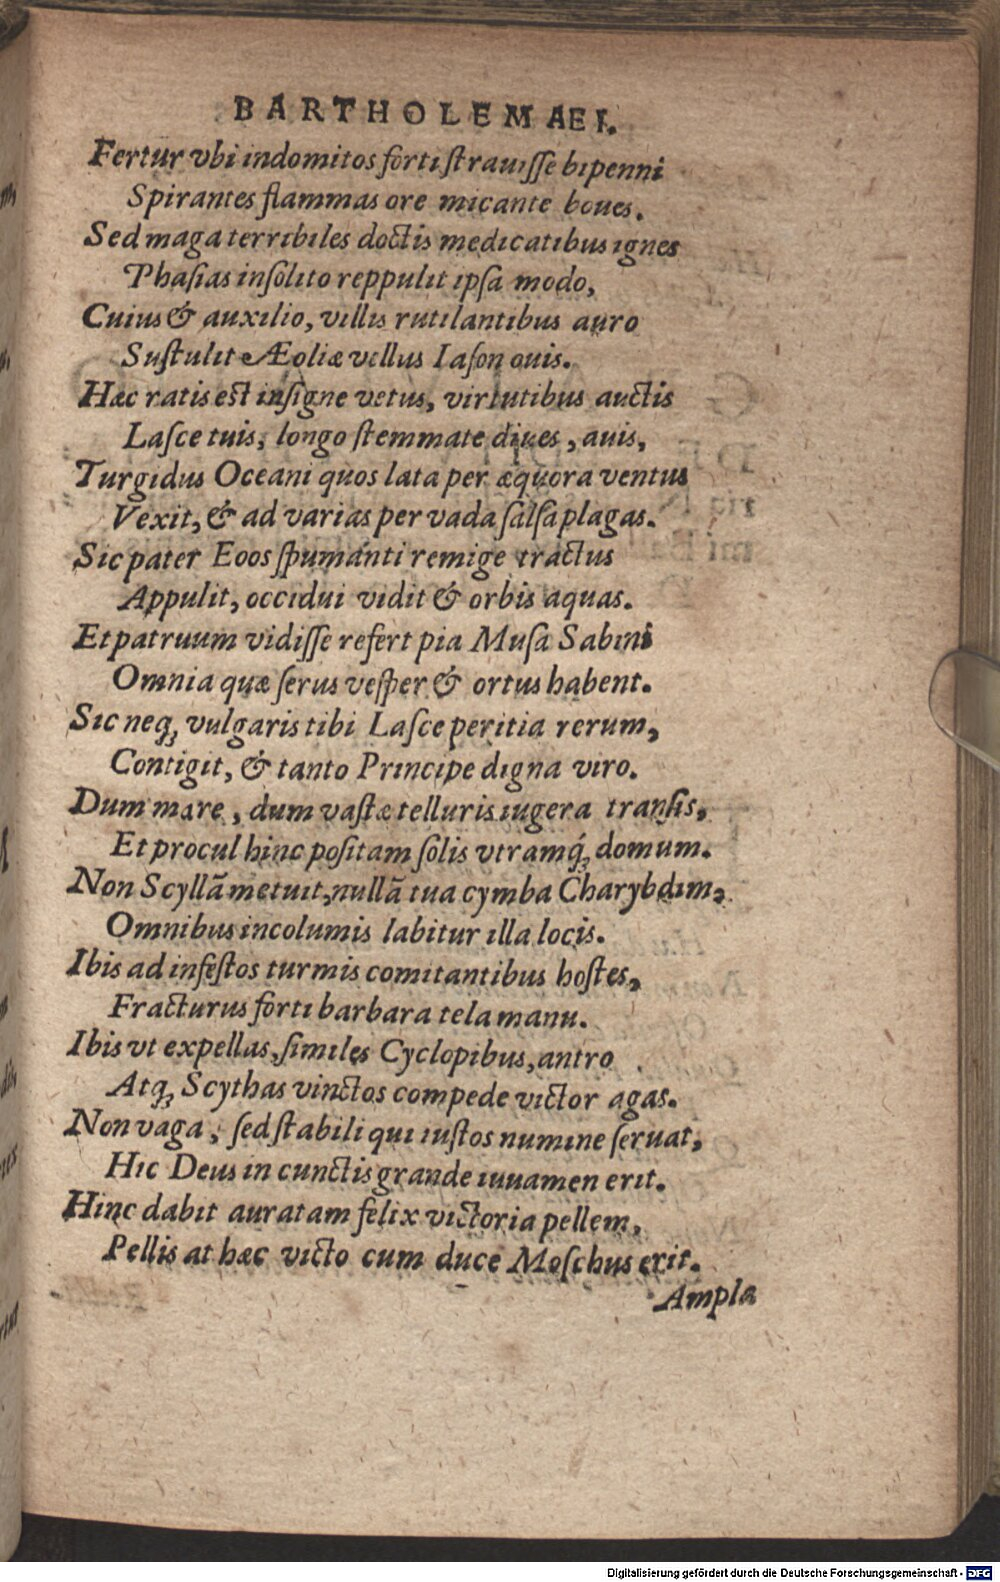 BARTHOLEMAEI.
Fertur vbi indomitos forti strauisse bipenni
Spirantes flammas ore micante boues.
Sed maga terribiles doctis medicatibus ignes
Phasias insolito reppulit ipsa modo,
Cuius & auxilio, villis rutilantibus auro
Sustulit Æoliæ vellus Iason ouis.
Hæc ratis est insigne vetus, virtutibus auctis
Lasce tuis, longo stemmate diues, auis,
Turgidus Oceani quos lata per æquora ventus
Vexit, & ad varias per vada salsa plagas.
Sic pater Eoos spumanti remige tractus
Appulit, occidui vidit & orbis aquas.
Et patruum vidisse refert pia Musa Sabini
Omnia quæ serus vesper & ortus habent.
Sic neq; vulgaris tibi Lasce peritia rerum,
Contigit, & tanto Principe digna viro.
Dum mare, dum vastæ telluris iugera transis,
Et procul hinc positam solis vtramq́; domum.
Non Scyllā metuit, nullā tua cymba Charybdim,
Omnibus incolumis labitur illa locis.
Ibis ad infestos turmis comitantibus hostes,
Fracturus forti barbara tela manu.
Ibis vt expellas, similes Cyclopibus, antro
Atq; Scythas vinctos compede victor agas.
Non vaga, sed stabili qui iustos numine seruat,
Hic Deus in cunctis grande iuuamen erit.
Hinc dabit auratam felix victoria pellem,
Pellis at hæc victo cum duce Moschus erit.
Ampla
Digitalisierung gefördert durch die Deutsche Forschungsgemeinschaft - DFG